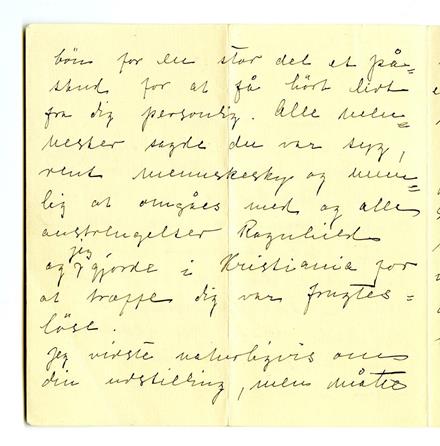 bön for en stor del et på=
skud for at få hört lidt
fra dig personlig. Alle men=
nesker sagde du var syg,
rent menneskesky og umu=
lig at omgåes med og alle
anstrengelser Ragnhild
og jeg gjorde i Kristiania for
at træffe dig var frugtes=
löse.
Jeg vidste naturligvis om
din udstilling, men måtte